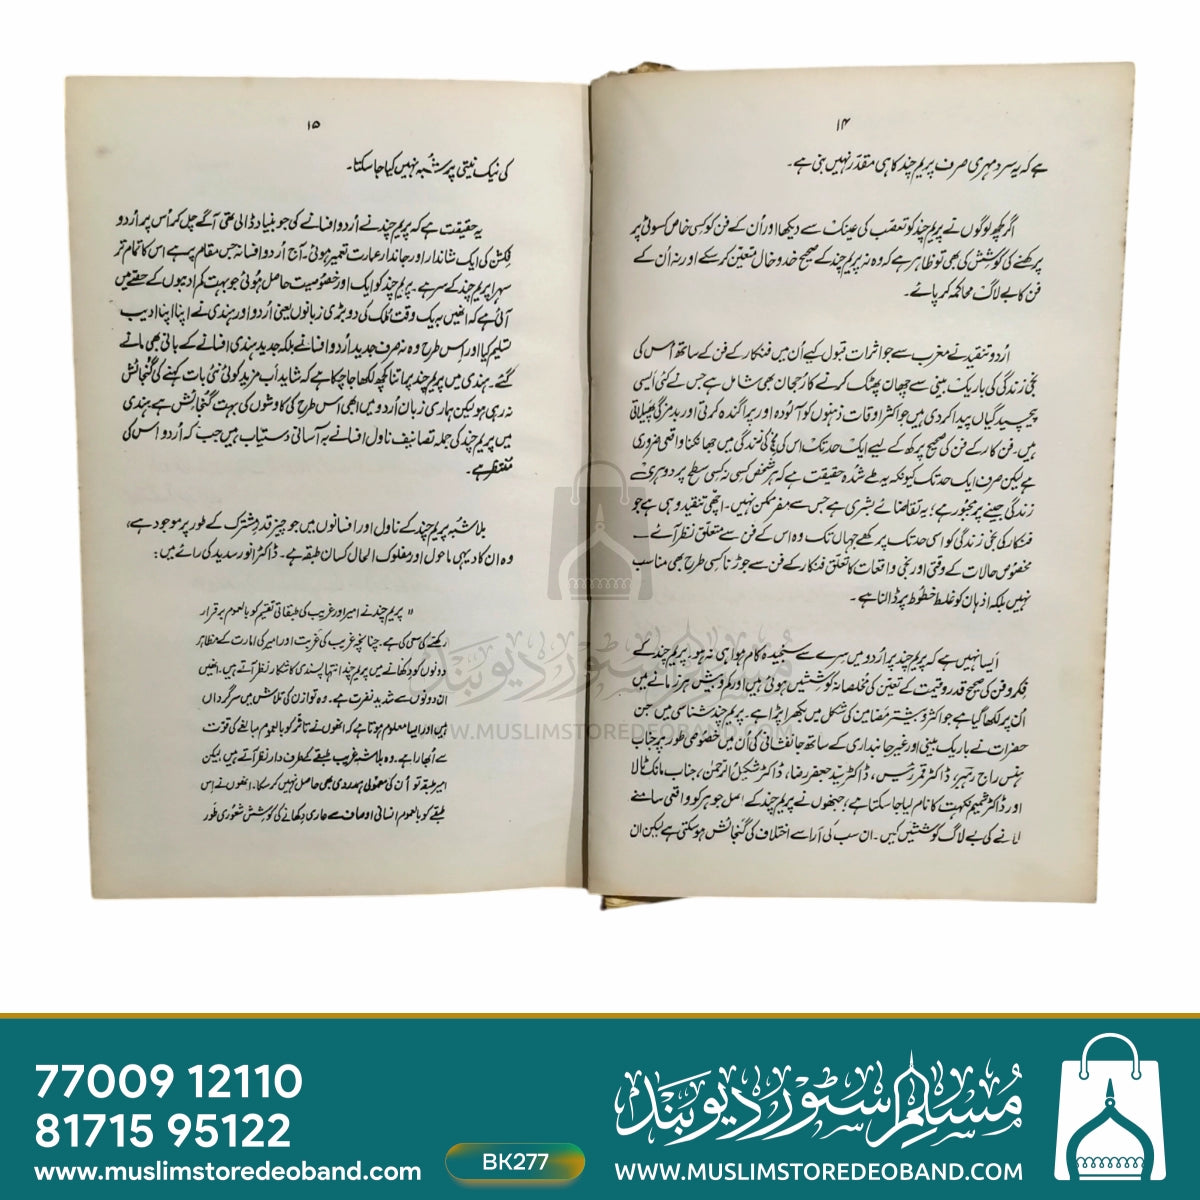 ۱۴
ہے کہ یہ سرد مہری صرف پریم چند کا ہی مقدّر نہیں بنی ہے۔
اگر کچھ لوگوں نے پریم چند کو تعصّب کی عینک سے دیکھا اور اُن کے فن کو کسی خاص کسوٹی پر
پرکھنے کی کوشش کی بھی تو ظاہر ہے کہ وہ نہ پریم چند کے صحیح خدوخال متعیّن کر سکے اور نہ اُن کے
فن کا بے لاگ محاکمہ کر پائے۔
اُردو تنقید نے مغرب سے جو اثرات قبول کیے اُن میں فنکار کے فن کے ساتھ اُس کی
نجی زندگی کی باریک بینی سے چھان پھٹک کرنے کا رُجحان بھی شامل ہے جس نے کئی ایسی
پیچیدگیاں پیدا کر دی ہیں جو اکثر اوقات ذہنوں کو آلودہ اور پراگندہ کرتی اور بدمزگی پھیلاتی
ہیں۔ فن کار کے فن کی صحیح پرکھ کے لیے ایک حد تک اس کی نجی زندگی میں جھانکنا واقعی ضروری
ہے لیکن صرف ایک حد تک کیونکہ یہ طے شدہ حقیقت ہے کہ ہر شخص کسی نہ کسی سطح پر دوہری
زندگی جینے پر مجبور ہے؛ یہ تقاضائے بشری ہے جس سے مفر ممکن نہیں۔ اچھی تنقید وہی ہے جو
فنکار کی نجی زندگی کو اسی حد تک پرکھے جہاں تک وہ اس کے فن سے متعلّق نظر آئے ــ
مخصوص حالات کے وقتی اور نجی واقعات کا تعلّق فنکار کے فن سے جوڑنا کسی طرح بھی مناسب
نہیں بلکہ اذہان کو غلط خطوط پر ڈالنا ہے۔
ایسا نہیں ہے کہ پریم چند پر اُردو میں سرے سے سنجیدہ کام ہوا ہی نہ ہو۔ پریم چند کے
فکر و فن کی صحیح قدر و قیمت کے تعیّن کی مخلصانہ کوششیں ہوئی ہیں اور کم و بیش ہر زمانے میں
اُن پر لکھا گیا ہے جو اکثر و بیشتر مضامین کی شکل میں بکھرا پڑا ہے۔ پریم چند شناسی میں جن
حضرات نے باریک بینی اور غیر جانبداری کے ساتھ جانفشانی کی اُن میں خصوصی طور پر جناب
ہنس راج رہبر، ڈاکٹر قمر رئیس، ڈاکٹر سیّد جعفر رضا، ڈاکٹر شکیل الرحمٰن، جناب مانک ٹالا
اور ڈاکٹر شمیم نکہت کا نام لیا جا سکتا ہے؛ جنھوں نے پریم چند کے اصل جوہر کو واقعی سامنے
لانے کی بے لاگ کوششیں کیں۔ ان سب کی آرا سے اختلاف کی گنجائش ہو سکتی ہے لیکن ان
۱۵
کی نیک نیتی پر شُبہ نہیں کیا جا سکتا۔
یہ حقیقت ہے کہ پریم چند نے اُردو افسانے کی جو بنیاد ڈالی تھی آگے چل کر اُس پر اُردو
فکشن کی ایک شاندار اور جاندار عمارت تعمیر ہوئی۔ آج اُردو افسانہ جس مقام پر ہے اس کا تمام تر
سہرا پریم چند کے سر ہے۔ پریم چند کو ایک اور خصُوصیت حاصل ہُوئی جو بہت کم ادیبوں کے حصّے میں
آئی ہے کہ انھیں بہ یک وقت مُلک کی دو بڑی زبانوں یعنی اُردو اور ہندی نے اپنا اپنا ادیب
تسلیم کیا اور اس طرح وہ نہ صرف جدید اُردو افسانے بلکہ جدید ہندی افسانے کے بانی بھی مانے
گئے۔ ہندی میں پریم چند پر اتنا کچھ لکھا جا چکا ہے کہ شاید اب مزید کوئی نئی بات کہنے کی گنجائش
نہ رہی ہو لیکن ہماری زبان اُردو میں ابھی اس طرح کی کاوشوں کی بہت گنجائش ہے۔ ہندی
میں پریم چند کی جملہ تصانیف ناول افسانے بہ آسانی دستیاب ہیں جب کہ اُردو اس کی
منتظر ہے۔
بلا شبہ پریم چند کے ناول اور افسانوں میں جو چیز قدرِ مشترک کے طور پر موجود ہے،
وہ ان کا دیہی ماحول اور مفلوک الحال کسان طبقہ ہے۔ ڈاکٹر انور سدید کی رائے میں:
" پریم چند نے امیر اور غریب کی طبقاتی تقسیم کو بالعموم برقرار
رکھنے کی سعی کی ہے۔ چنانچہ غریب کی غربت اور امیر کی امارت کے مظاہر
دونوں کو دکھانے میں پریم چند انتہا پسندی کا شکار نظر آتے ہیں۔ انھیں
ان دونوں سے شدید نفرت ہے۔ وہ توازن کی تلاش میں سرگرداں
ہیں اور ایسا معلوم ہوتا ہے کہ انھوں نے تاثر کو بالعموم مبالغے کی قوت
سے اُبھارا ہے۔ وہ بلا شبہ غریب طبقے کے طرف دار نظر آتے ہیں لیکن
امیر طبقہ تو اُن کی معمولی ہمدردی بھی حاصل نہیں کر سکا۔ انھوں نے اس
طبقے کو بالعموم انسانی اوصاف سے عاری دِکھانے کی کوشش شعوری طور
مُسلم سٹور دیوبند
WWW.MUSLIMSTOREDEOBAND.COM
77009 12110
81715 95122
www.muslimstoredeoband.com
BK277
مُسلم سٹور دیوبند
WWW.MUSLIMSTOREDEOBAND.COM